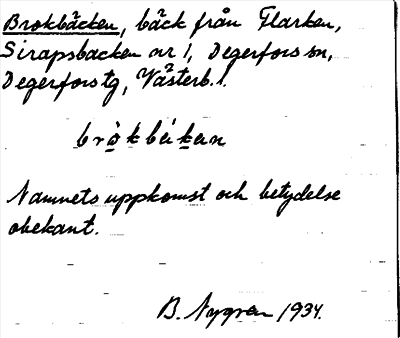 Brokbäcken, bäck från Flarken,
Sirapsbacken nr 1, Degerfors sn,
Degerfors tg, Västerb. l.
brokbäkan
Namnets uppkomst och betydelse
obekant.
B. Nygren 1934.